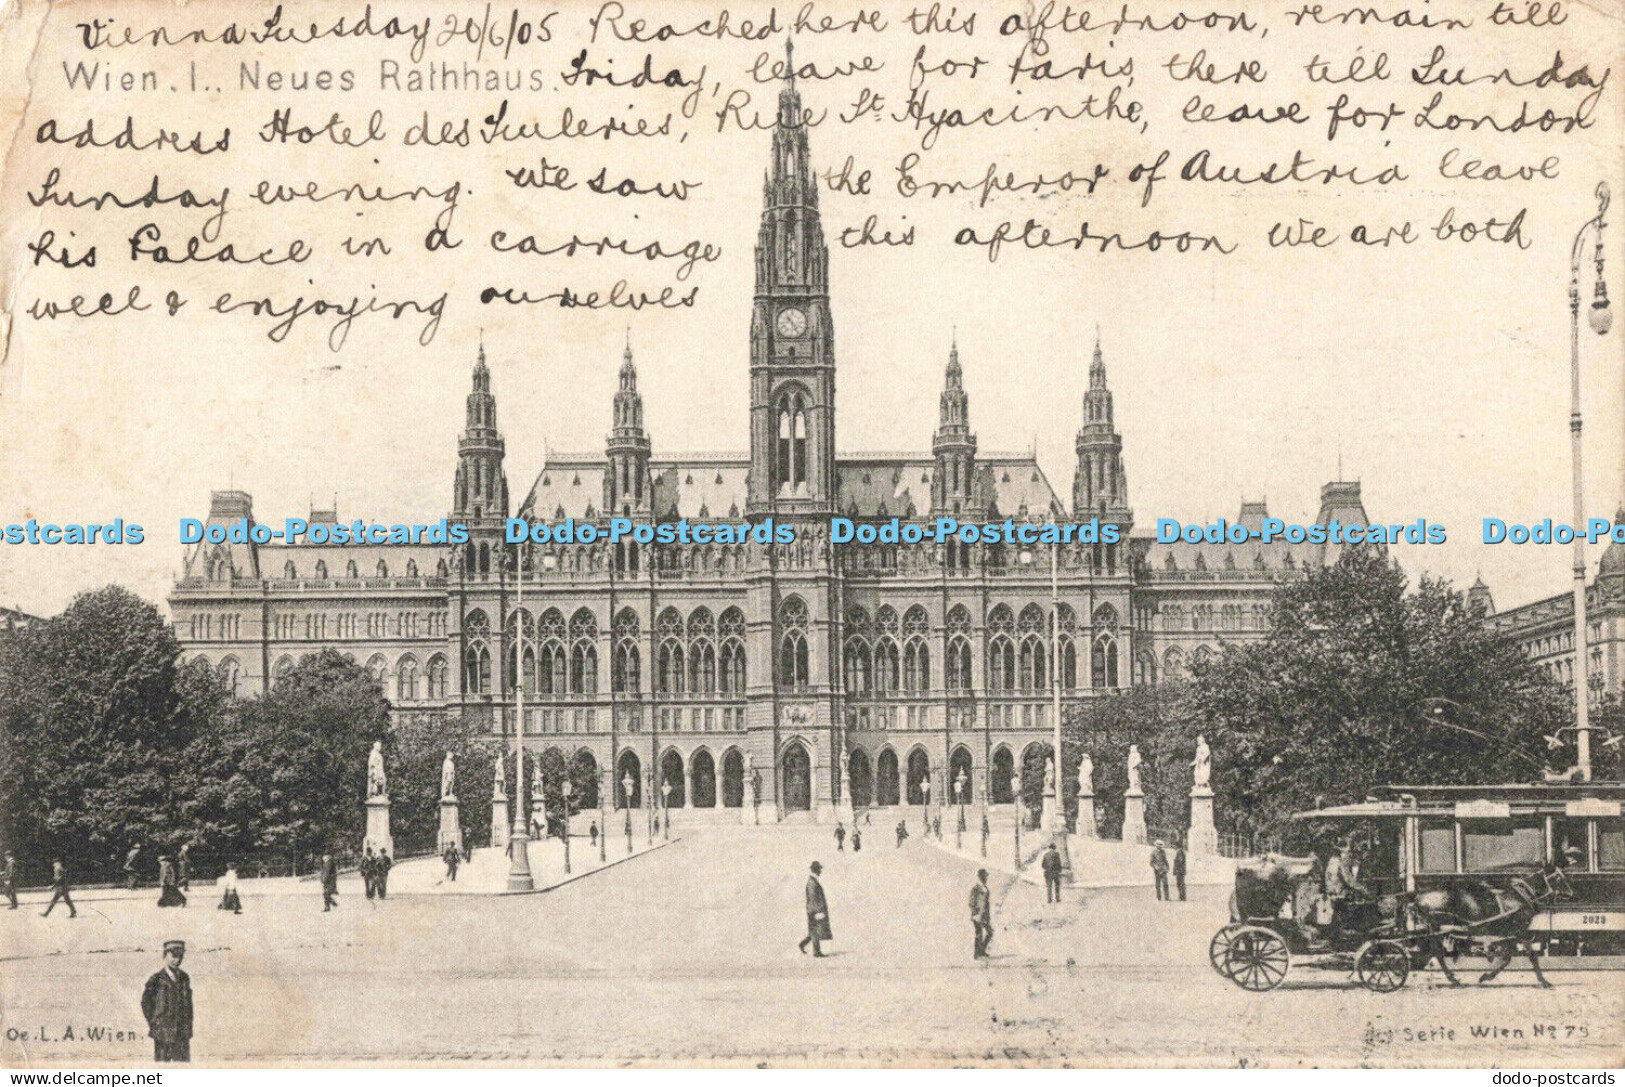 Vienna Tuesday 20/6/05 Reached here this afternoon, remain till
Wien. I., Neues Rathhaus.
Friday, leave for Paris, there till Sunday
address Hotel des Tuileries, Rue St Hyacinthe, leave for London
Sunday evening. We saw the Emperor of Austria leave
his Palace in a carriage this afternoon We are both
well & enjoying ourselves
stcards Dodo-Postcards Dodo-Postcards Dodo-Postcards Dodo-Postcards Dodo-Po
2029
Oe. L. A. Wien.
Serie Wien No 79
delcampe.net
dodo-postcards